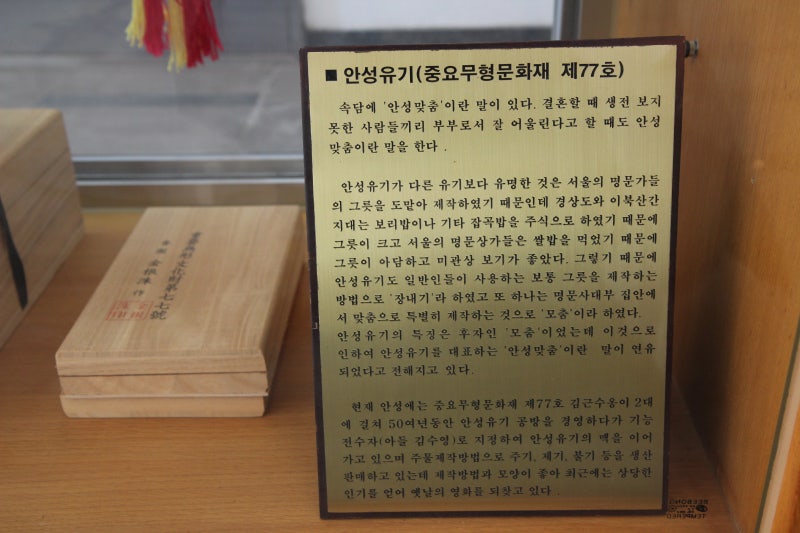 ■ 안성유기(중요무형문화재 제77호)
속담에 '안성맞춤'이란 말이 있다. 결혼할 때 생전 보지
못한 사람들끼리 부부로서 잘 어울린다고 할 때도 안성
맞춤이란 말을 한다 .
안성유기가 다른 유기보다 유명한 것은 서울의 명문가들
의 그릇을 도맡아 제작하였기 때문인데 경상도와 이북산간
지대는 보리밥이나 기타 잡곡밥을 주식으로 하였기 때문에
그릇이 크고 서울의 명문상가들은 쌀밥을 먹었기 때문에
그릇이 아담하고 미관상 보기가 좋았다. 그렇기 때문에
안성유기도 일반인들이 사용하는 보통 그릇을 제작하는
방법으로 '장내기'라 하였고 또 하나는 명문사대부 집안에
서 맞춤으로 특별히 제작하는 것으로 '모춤'이라 하였다.
안성유기의 특징은 후자인 '모춤'이었는데 이것으로
인하여 안성유기를 대표하는 '안성맞춤'이란 말이 연유
되었다고 전해지고 있다.
현재 안성에는 중요무형문화재 제77호 김근수옹이 2대
에 걸쳐 50여년동안 안성유기 공방을 경영하다가 기능
전수자(아들 김수영)로 지정하여 안성유기의 맥을 이어
가고 있으며 주물제작방법으로 주기, 제기, 불기 등을 생산
판매하고 있는데 제작방법과 모양이 좋아 최근에는 상당한
인기를 얻어 옛날의 영화를 되찾고 있다 .
重要無形文化財第七七號
金根洙 作